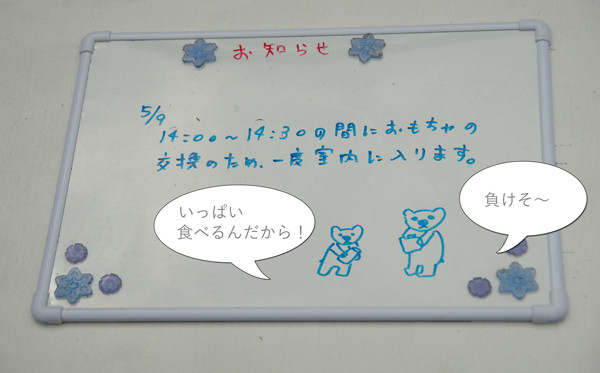 お知らせ
5/9
14:00～14:30の間におもちゃの
交換のため、一度室内に入ります。
いっぱい
食べるんだから！
負けそ～